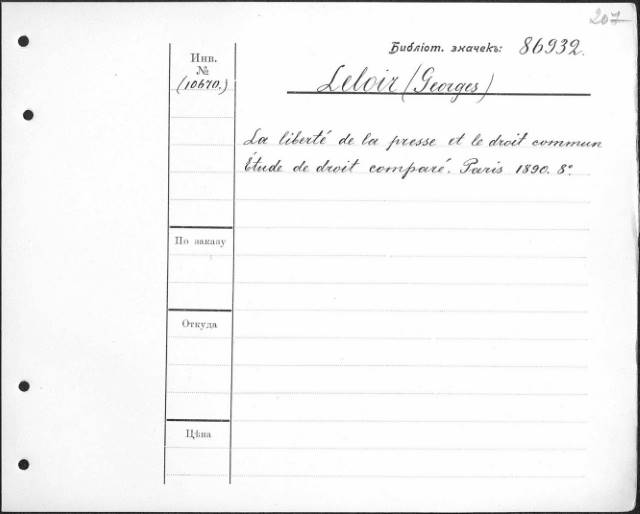 207
Библіот. значекъ: 86932.
Инв.
№
(10670.)
Leloir (Georges)
La liberté de la presse et le droit commun
Étude de droit comparé. Paris 1890. 8°.
По заказу
Откуда
Цѣна